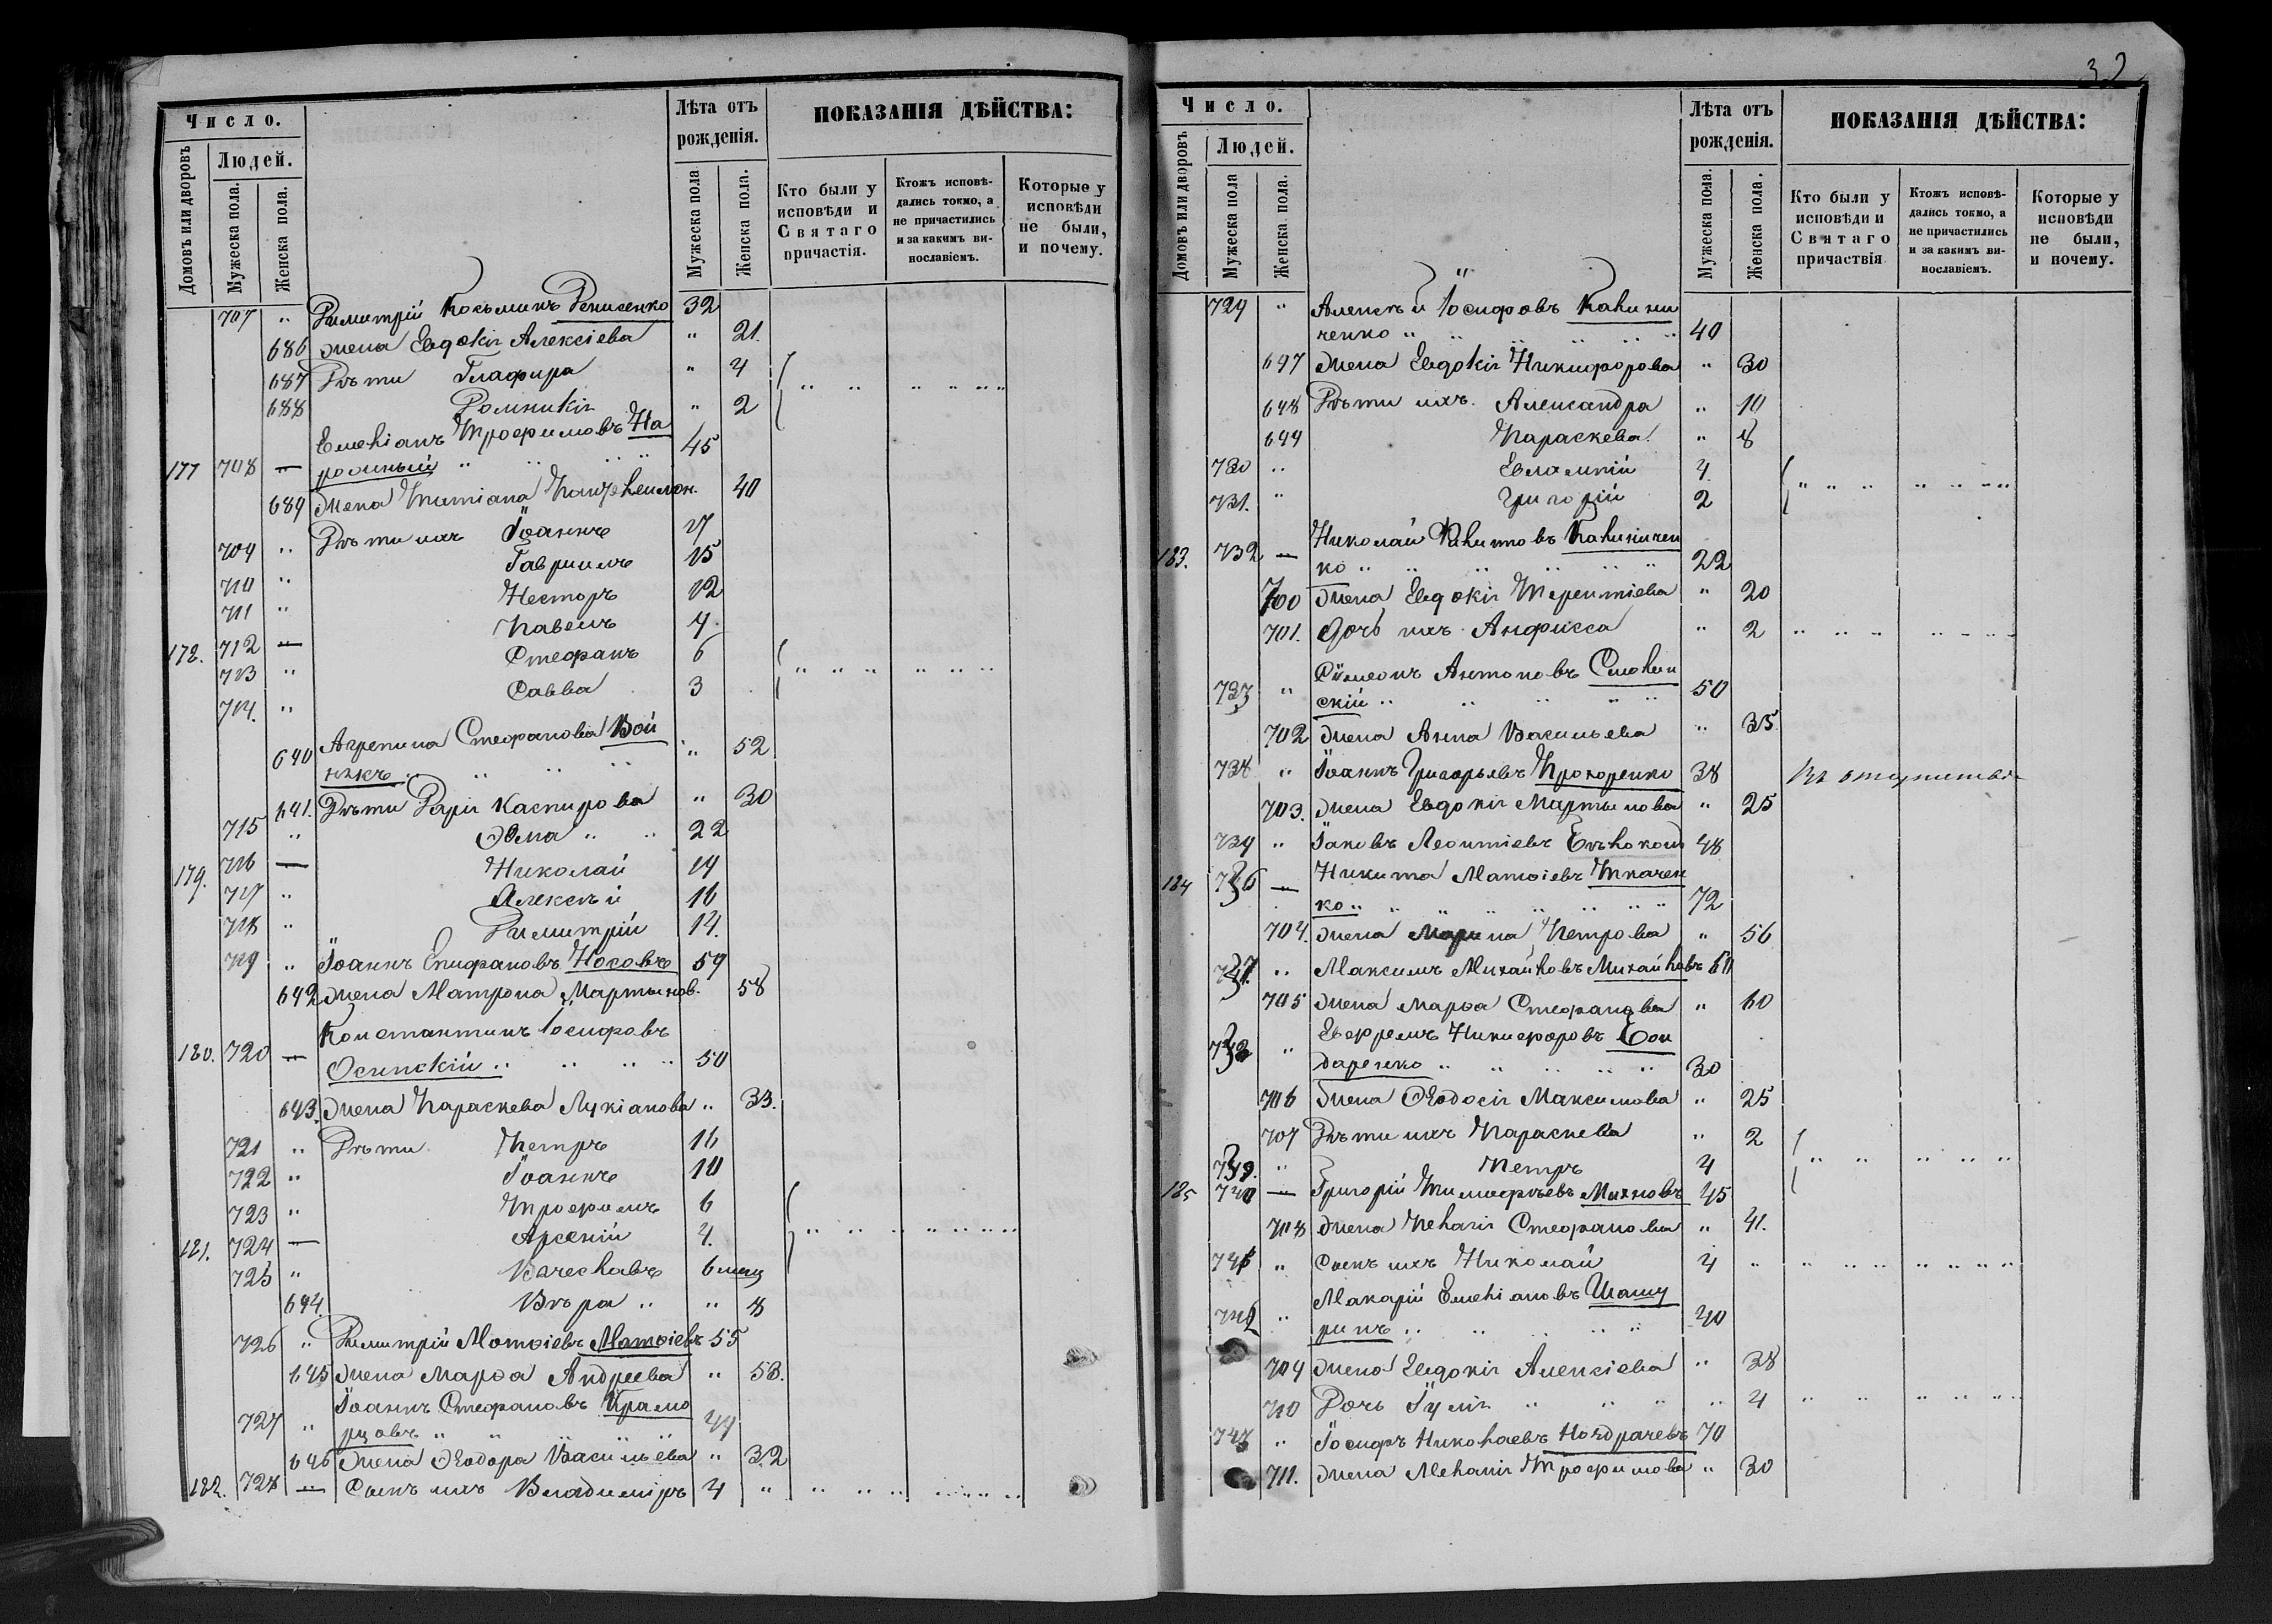 Число.
Лѣта отъ рожденія.
ПОКАЗАНІЯ ДѢЙСТВА:
Домовъ или дворовъ
Людей.
Мужеска пола.
Женска пола.
Мужеска пола
Женска пола.
Кто были у исповѣди и Святаго причастія.
Ктожъ исповѣдались токмо, а не причастились и за какимъ винославіемъ.
Которые у исповѣди не были, и почему.
707 " Димитрій Косьминъ Денисенко 32
686 жена Евдокія Алексіева " 21.
687 Дѣти Глафира " 4
688 Домникія " 2
Емеліанъ Трофимовъ На
177 708 — родный " " " " 45
689 Жена Татіана Пантелеимон. 40
709 " Дѣти ихъ Іоаннъ 17
710 " Гавріилъ 15
711 " Несторъ 12
178. 712 — Павелъ 9
713 " Стефанъ 6
714. " Савва 3
Агрепина Стефанова Вой
690 никъ " " " " " 52
691. Дѣти Дарія Каспирова " 30
715 " Ѳома " " 22
179. 716 — Николай 19
717 " Алексѣй 16
718 " Димитрій 14.
719 " Іоаннъ Епифановъ Носовъ 59
692 жена Матрона Мартынов. 58
Константинъ Іосифовъ
180. 720 — Осинскій " " " " 50
693. Жена Параскева Лукіанова " 33.
721 " Дѣти Петръ 16
722 " Іоаннъ 10
723 " Трофимъ 6
181. 724 — Арсеній 4.
725 " Вячеславъ 6 мец
694 Вѣра " " 8
726 " Димитрій Матѳіевъ Матѳіевъ 55
695 жена Марѳа Андреева " 53.
Іоаннъ Стефановъ Крамо
727 " рцовъ " " " " " 49
696 Жена Ѳеодора Васильева " 32
182. 728 — Сынъ ихъ Владиміръ 4 "
32
Число.
Лѣта отъ рожденія.
ПОКАЗАНІЯ ДѢЙСТВА:
Домовъ или дворовъ
Людей.
Мужеска пола
Женска пола.
Мужеска пола.
Женска пола.
Кто были у исповѣди и Святаго причаствія
Ктожъ исповѣдались токмо, а не причастились и за какимъ винославіемъ.
Которые у исповѣди не были, и почему.
729 " Алексѣй Іосифовъ Калини
ченко " " " " " 40
697 жена Евдокія Никифорова " 30
698 Дѣти ихъ Александра " 10
699 Параскева " 8
730 " Евлампій 4.
731. " Григорій 2
Николай Филиповъ Калиничен
183. 732 — ко " " " " " 22
700 жена Евдокія Терентіева " 20
701. Дочь ихъ Анфисса " 2
Сѵмеонъ Антоновъ Смолин
733 " скій " " " " 50
702 жена Анна Васильева " 35
738 " Іоаннъ Григорьевъ Прохоренко 38
703. жена Евдокія Мартынова " 25
739 " Іаковъ Леонтіевъ 48
Никита Матѳіевъ Ткачен
184 736 — ко " " " " " " " 72
704. жена Марина Петрова " 56
737. " Максимъ Михайловъ Михайловъ 60
705 жена Марѳа Стефанова " 60
Евфремъ Никифоровъ Бон
738 " даренко " " " " " 30
706 Жена Ѳеодосія Максимова " 25
707 Дѣти ихъ Параскева " 2
739. " Петръ 4
185 740 — Григорій Тимофѣевъ Михновъ 45
708 жена Пелагія Стефанова " 41.
741 " Сынъ ихъ Николай 4 "
Макарій Емеліановъ Шашу
742 " ринъ " " " " " 40
709 жена Евдокія Алексіева " 38
710 Дочь Іулія " " " " 4
743 " Іосифъ Николаевъ Нондрачевъ 70
711. жена Меланія Трофимова " 30